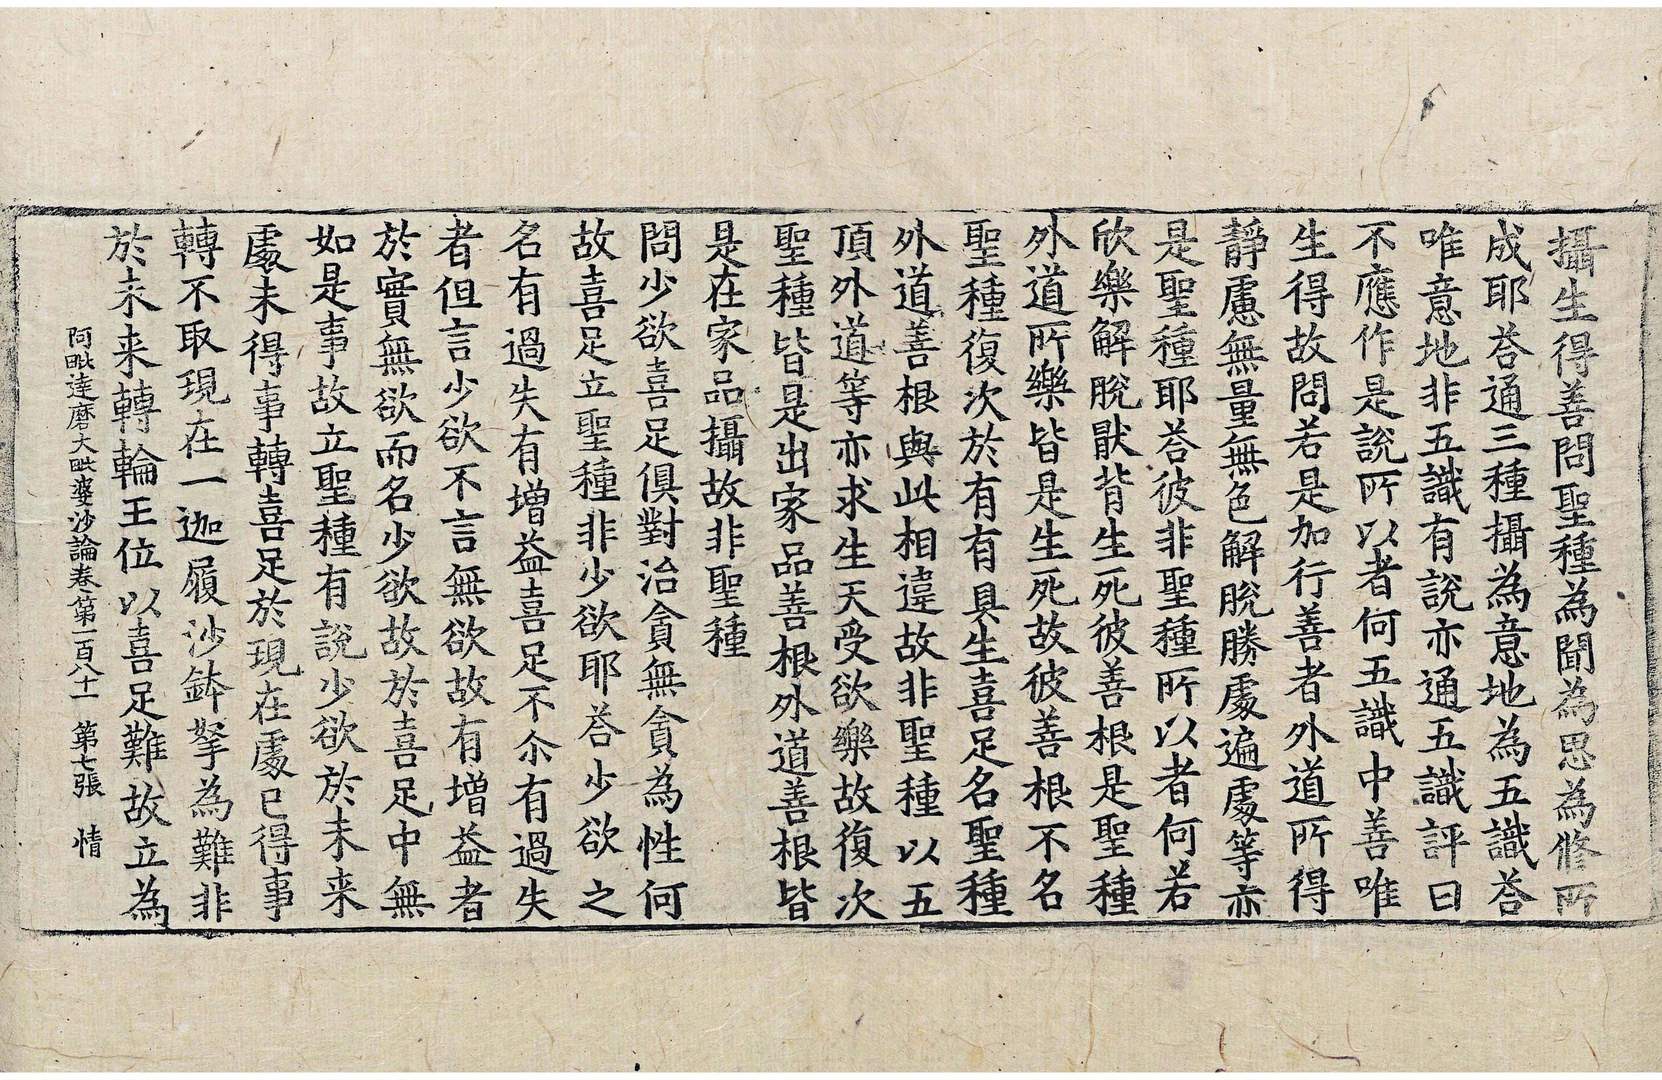 攝生得善問聖種為聞為思為修所
成耶荅通三種攝為意地為五識荅
唯意地非五識有說亦通五識評曰
不應作是說所以者何五識中善唯
生得故問若是加行善者外道所得
靜慮無量無色解脫勝處遍處等亦
是聖種耶荅彼非聖種所以者何若
欣樂解脫猒背生死彼善根是聖種
外道所樂皆是生死故彼善根不名
聖種復次於有有具生喜足名聖種
外道善根與此相違故非聖種以五
頂外道等亦求生天受欲樂故復次
聖種皆是出家品善根外道善根皆
是在家品攝故非聖種
問少欲喜足俱對治貪無貪為性何
故喜足立聖種非少欲耶荅少欲之
名有過失有增益喜足不尒有過失
者但言少欲不言無欲故有增益者
於實無欲而名少欲故於喜足中無
如是事故立聖種有說少欲於未来
處未得事轉喜足於現在處已得事
轉不取現在一迦履沙鉢拏為難非
於未来轉輪王位以喜足難故立為
阿毗達磨大毗婆沙論卷第一百八十一 第七張 情